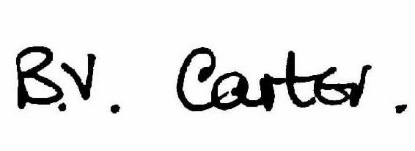 B.V. Carter.